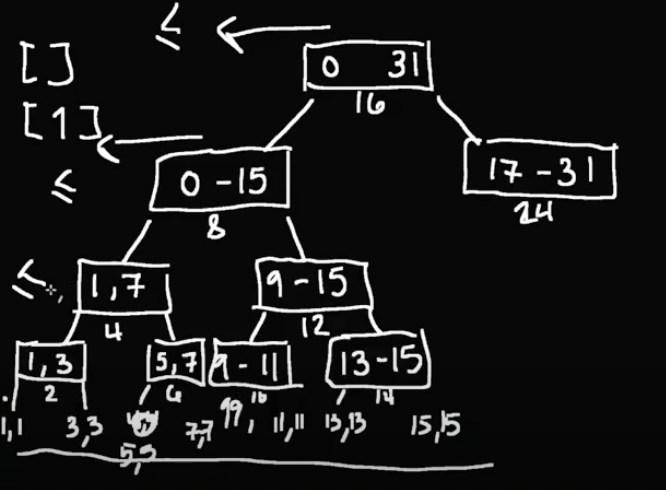 ≤ ←
[ ]
0 31
16
[1] ←
≤
0 - 15
8
17 - 31
24
≤
1,7
4
9 - 15
12
1,3
2
5,7
6
9 - 11
10
13 - 15
14
1,1
3,3
5,5
7,7
99,
11,11
13,13
15,15